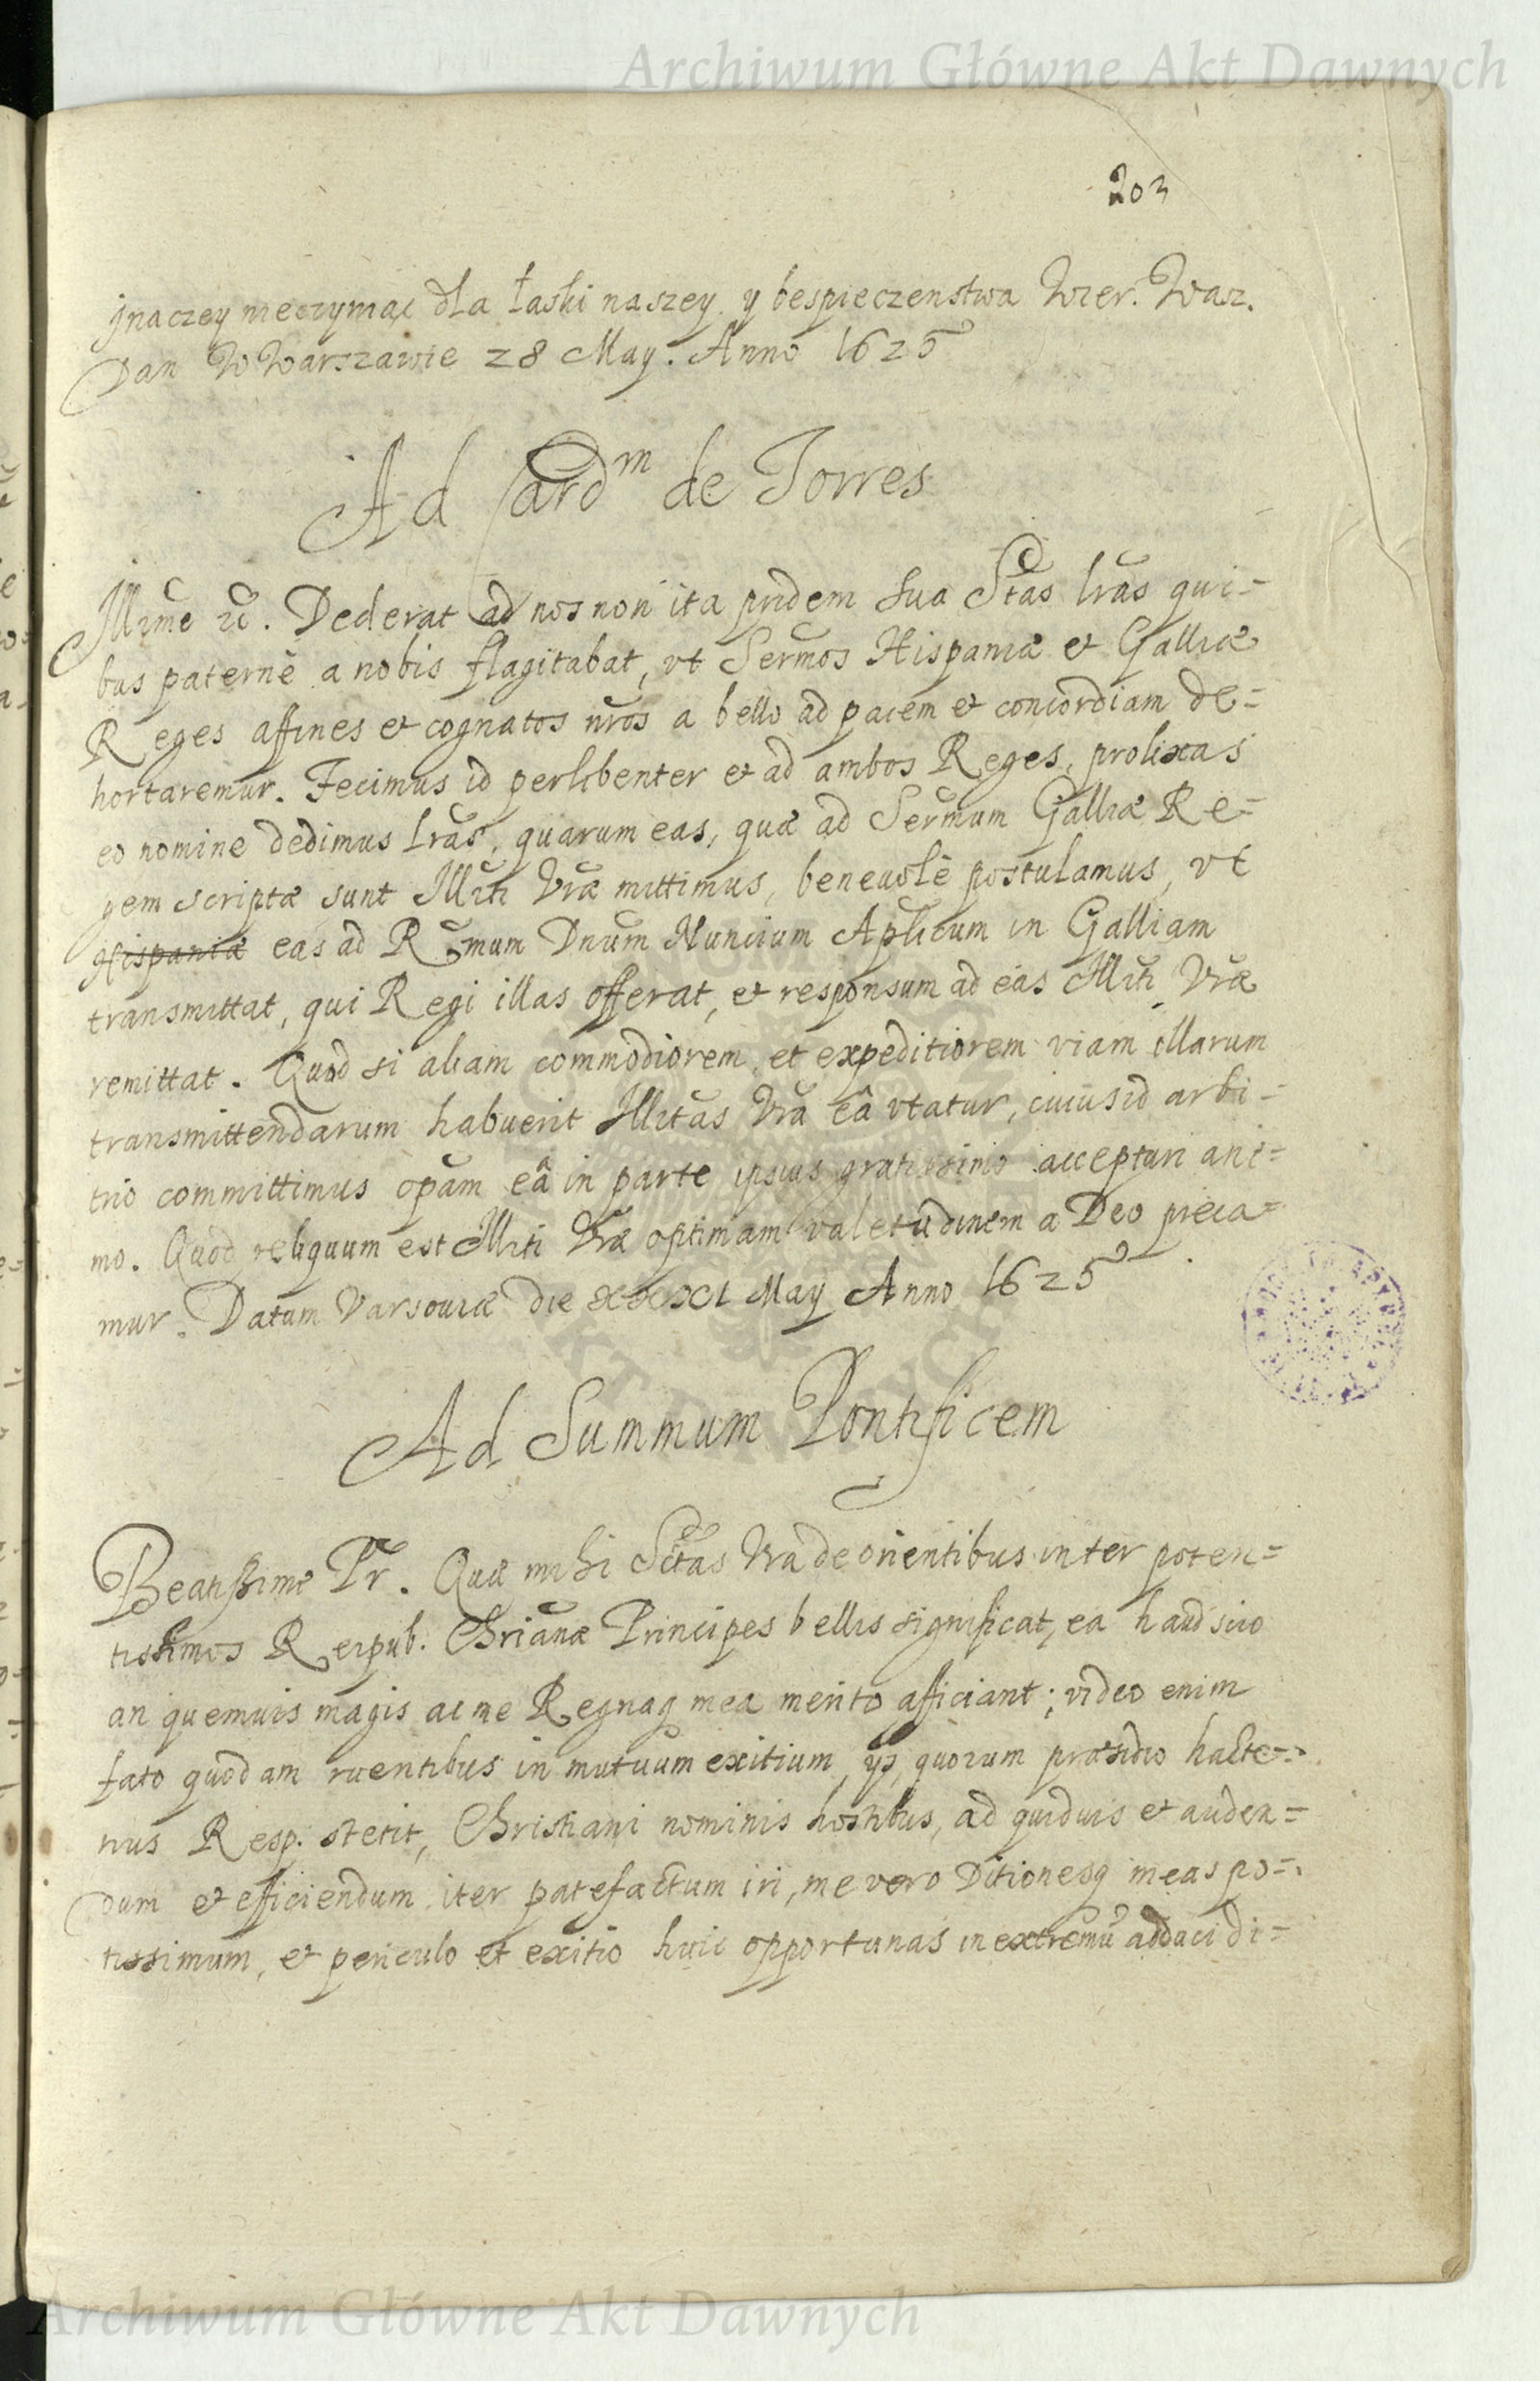 Archiwum Główne Akt Dawnych
203
jnaczey nieczyniąc dla łaski naszey y bespieczenstwa Wier. Wasz.
Dan W Warszawie 28 May. Anno 1625
Ad Cardm de Torres
Illme rc. Dederat ad nos non ita pridem Sua Stas lras qui=
bus paternè a nobis flagitabat, vt Sermos Hispaniæ et Galliæ
Reges affines et cognatos nros a bello ad pacem et concordiam de=
hortaremur. Fecimus id perlibenter et ad ambos Reges, prolixas
eo nomine dedimus lras, quarum eas, quæ ad Sermum Galliæ Re=
gem scriptæ sunt Illti Vræ mittimus, beneuolè postulamus, vt
Hispaniæ eas ad Rmum Dnum Nuncium Aplicum in Galliam
transmittat, qui Regi illas offerat, et responsum ad eas Illti Vræ
remittat. Quod si aliam commodiorem, et expeditiorem viam illarum
transmittendarum habuerit Illtas Vra eâ vtatur, cuius id arbi=
trio committimus opam eâ in parte ipsius gratissimo accepturi ani=
mo. Quod reliquum est Illti Vræ optimam valetudinem a Deo preca=
mur. Datum Varsouiæ die xxxi May Anno 1625
Ad Summum Pontificem
Beatissime Pr. Quæ mihi Sctas Vra de orientibus inter poten=
tissimos Reipub. Chrianæ Principes bellis significat, ea haud scio
an quemuis magis ac me Regnaq mea merito afficiant; video enim
fato quodam ruentibus in mutuum exitium ys, quorum præsidio hacte=
nus Resp. stetit, Christiani nominis hostibus, ad quiduis et auden=
dum et efficiendum iter patefactum iri, me vero Ditionesq meas po=
tissimum, et periculo et exitio huic opportunas in extremũ adduci di=
Archiwum Główne Akt Dawnych